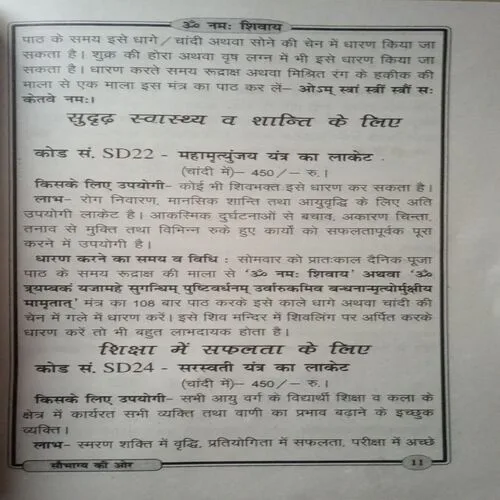 ॐ नमः शिवाय
पाठ के समय इसे धागे / चांदी अथवा सोने की चेन में धारण किया जा
सकता है। शुक्र की होरा अथवा वृष लग्न में भी इसे धारण किया जा
सकता है। धारण करते समय रूद्राक्ष अथवा मिश्रित रंग के हकीक की
माला से एक माला इस मंत्र का पाठ कर लें– ओ३म् स्त्रां स्त्रीं स्त्रौं सः
केतवे नमः।
सुदृढ़ स्वास्थ्य व शान्ति के लिए
कोड सं. SD22 - महामृत्युंजय यंत्र का लाकेट
(चांदी में) – 450/– रु.।
किसके लिए उपयोगी– कोई भी शिवभक्त इसे धारण कर सकता है।
लाभ– रोग निवारण, मानसिक शान्ति तथा आयुवृद्धि के लिए अति
उपयोगी लाकेट है। आकस्मिक दुर्घटनाओं से बचाव, अकारण चिन्ता,
तनाव से मुक्ति तथा विभिन्न रुके हुए कार्यों को सफलतापूर्वक पूरा
करने में उपयोगी है।
धारण करने का समय व विधि : सोमवार को प्रातःकाल दैनिक पूजा
पाठ के समय रूद्राक्ष की माला से 'ॐ नमः शिवाय' अथवा 'ॐ
त्र्यम्बकं यजामहे सुगन्धिम् पुष्टिवर्धनम् उर्वारुकमिव बन्धनान्मृत्योर्मुक्षीय
मामृतात्' मंत्र का 108 बार पाठ करके इसे काले धागे अथवा चांदी की
चेन में गले में धारण करें। इसे शिव मन्दिर में शिवलिंग पर अर्पित करके
धारण करें तो भी बहुत लाभदायक होता है।
शिक्षा में सफलता के लिए
कोड सं. SD24 - सरस्वती यंत्र का लाकेट
(चांदी में) – 450/– रु.।
किसके लिए उपयोगी– सभी आयु वर्ग के विद्यार्थी शिक्षा व कला के
क्षेत्र में कार्यरत सभी व्यक्ति तथा वाणी का प्रभाव बढ़ाने के इच्छुक
व्यक्ति।
लाभ– स्मरण शक्ति में वृद्धि, प्रतियोगिता में सफलता, परीक्षा में अच्छे
सौभाग्य की ओर
11